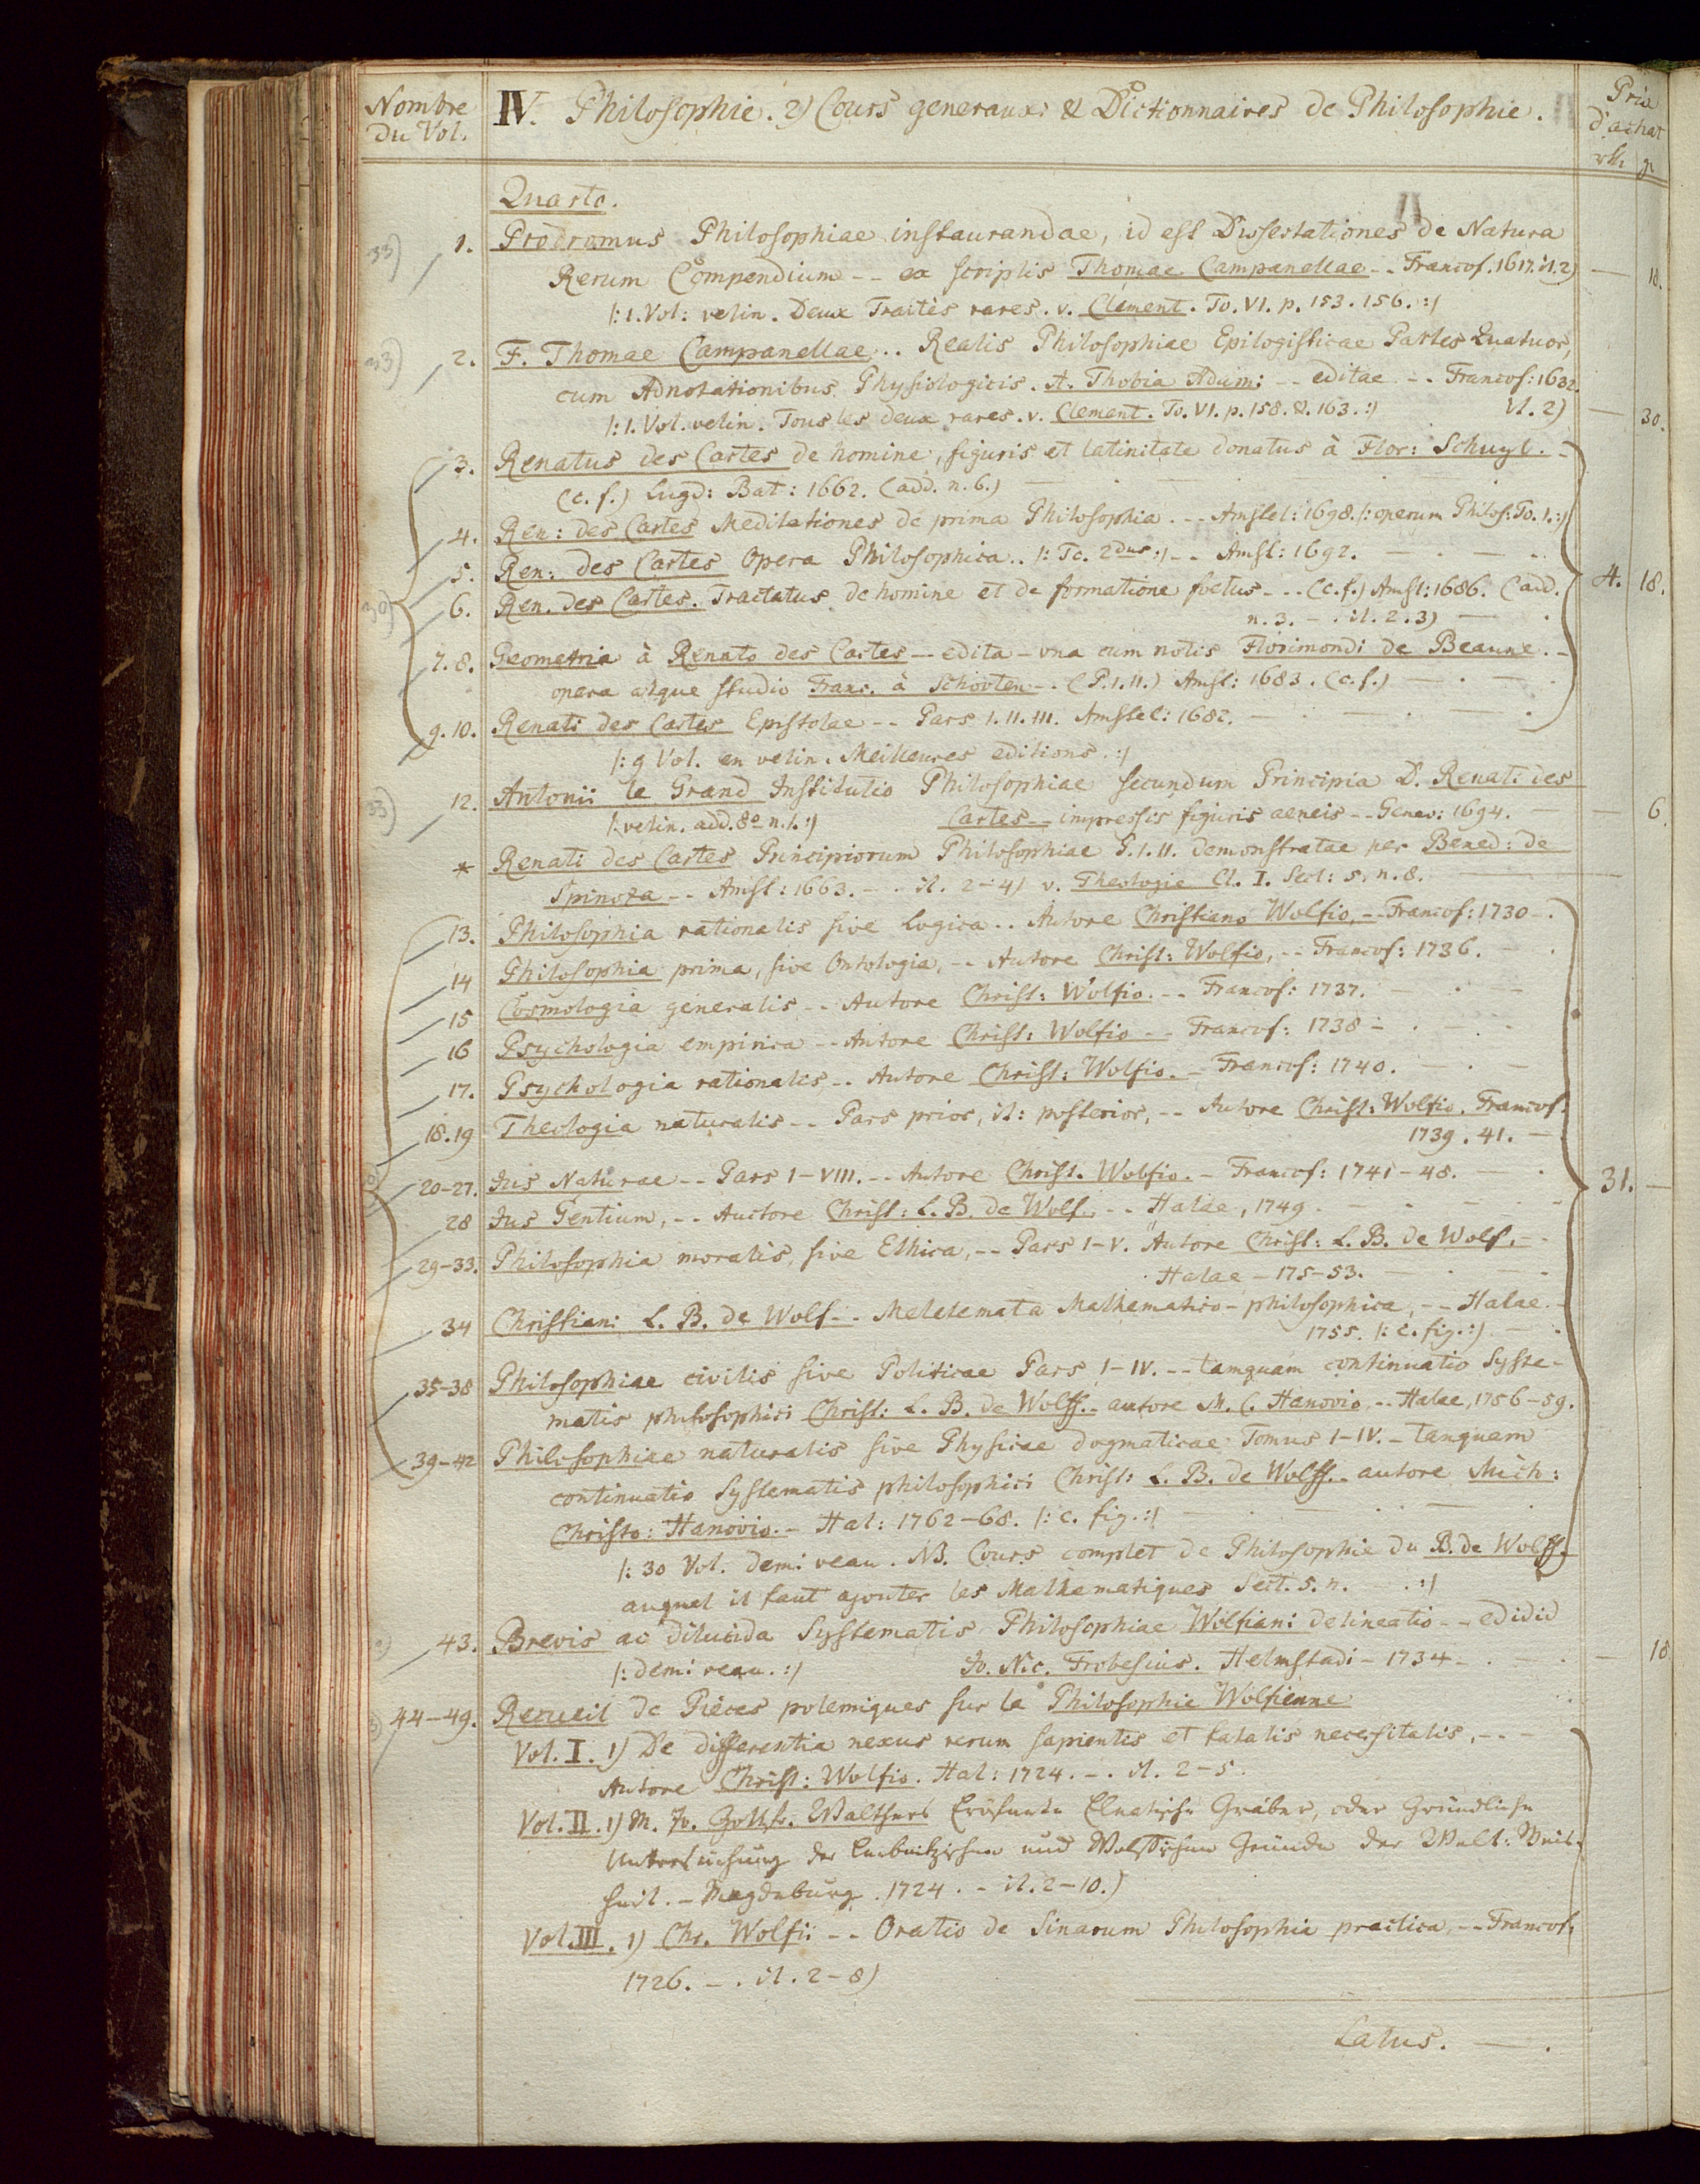 Nombre du Vol.
IV. Philosophie. 2) Cours generaux & Dictionnaires de Philosophie.
Prix d'achat
rth. gr
Quarto.
33) 1. Prodromus Philosophiae instaurandae, id est Dissertationes de Natura
Rerum Compendium -- ex scriptis Thomae Campanellae -- Francof. 1617. it. 2) — 18.
/: 1. Vol: velin. Deux Traités rares. v. Clement. To. VI. p. 153. 156. :/
33) 2. F. Thomae Campanellae .. Realis Philosophiae Epilogisticae Partes Quatuor,
cum Adnotationibus Physiologicis. A. Thobia Adami -- editae -- Francof: 1632.
/: 1. Vol. velin. Tous les deux rares. v. Clement. To. VI. p. 158. & 163. :/ it. 2) — 30.
3. Renatus des Cartes de homine, figuris et latinitate donatus à Flor: Schuyl. -
(c. f.) Lugd: Bat: 1662. (add. n. 6.)
4. Ren: des Cartes Meditationes de prima Philosophia. -- Amstel: 1698. /: operum Philos: To. 1. :/
5. Ren: des Cartes Opera Philosophica .. /: To. 2dus :/ -- Amst: 1692.
6. Ren. des Cartes. Tractatus de homine et de formatione foetus -- (c. f.) Amst: 1686. (add. 4. 18.
n. 3. -. it. 2. 3)
7. 8. Geometria à Renato des Cartes -- edita - una cum notis Florimondi de Beaune. -
opera atque studio Franc. à Schooten -. (P. I. II.) Amst: 1683. (c. f.)
9. 10. Renati des Cartes Epistolae -- Pars I. II. III. Amstel: 1682.
/: 9 Vol. en velin. Meilleures editions. :/
33) 12. Antonii le Grand Institutio Philosophiae secundum Principia D. Renati des
/: velin. add. 8o n. 1. :/ Cartes -- impressis figuris aeneis -- Genev: 1694. — 6.
* Renati des Cartes Principiorum Philosophiae P. I. II. demonstratae per Bened: de
Spinoza -- Amst: 1663. -. it. 2-4) v. Theologie Cl. I. Sect: 5. n. 8.
13. Philosophia rationalis sive Logica .. Autore Christiano Wolfio, -- Francof: 1730 -.
14 Philosophia prima, sive Ontologia, -- Autore Christ: Wolfio, -- Francof: 1736.
15 Cosmologia generalis -- Autore Christ: Wolfio. -- Francof: 1737.
16 Psychologia empirica -- Autore Christ: Wolfio -- Francof: 1738 -
17. Psychologia rationalis -. Autore Christ: Wolfio. - Francof: 1740.
18. 19 Theologia naturalis -- Pars prior, it: posterior, -- Autore Christ: Wolfio. Francof.
1739. 41. -
20-27. Jus Naturae -- Pars I-VIII. -- Autore Christ. Wolfio. - Francof: 1741-48. 31. —
28 Jus Gentium, -- Auctore Christ: L. B. de Wolf. -- Halae, 1749.
29-33. Philosophia moralis, sive Ethica, -- Pars I-V. Autore Christ: L. B. de Wolf, -
Halae - 175-53.
34 Christiani L. B. de Wolf -- Meletemata Mathematico-philosophica, -- Halae.
1755. /: c. fig. :/
35-38 Philosophiae civilis sive Politicae Pars I-IV. -- tamquam continuatio Syste-
matis philosophici Christ: L. B. de Wolff. - autore M. C. Hanovio, -- Halae, 1756-59.
39-42 Philosophiae naturalis sive Physicae dogmaticae Tomus I-IV. - tanquam
continuatio Systematis philosophici Christ: L. B. de Wolff. - autore Mich:
Christo: Hanovio. - Hal: 1762-68. /: c. fig. :/
/: 30 Vol. demi veau. NB. Cours complet de Philosophie du B. de Wolff.
auquel il faut ajouter les Mathematiques Sect. 5. n. :/
43. Brevis ac dilucida Systematis Philosophiae Wolfiani delineatio -- edidit
/: demi veau. :/ Jo. Nic. Frobesius. Helmstadi - 1734 — 18
44-49. Recueil de Pièces polemiques sur la Philosophie Wolfienne
Vol. I. 1) De differentia nexus rerum sapientis et fatalis necessitatis, --
Autore Christ: Wolfio. Hal: 1724. -. it. 2-5.
Vol. II. 1) M. Jo. Gottfr. Walthers Eröfnete Eleatische Gräber, oder Gründliche
Untersuchung der Leibnitzischen und Wolfischen Gründe der Welt: Weis-
heit. - Magdeburg. 1724. - it. 2-10.)
Vol. III. 1) Chr. Wolfii -- Oratio de Sinarum Philosophia practica, -- Francof:
1726. -. it. 2-8)
Latus. — .